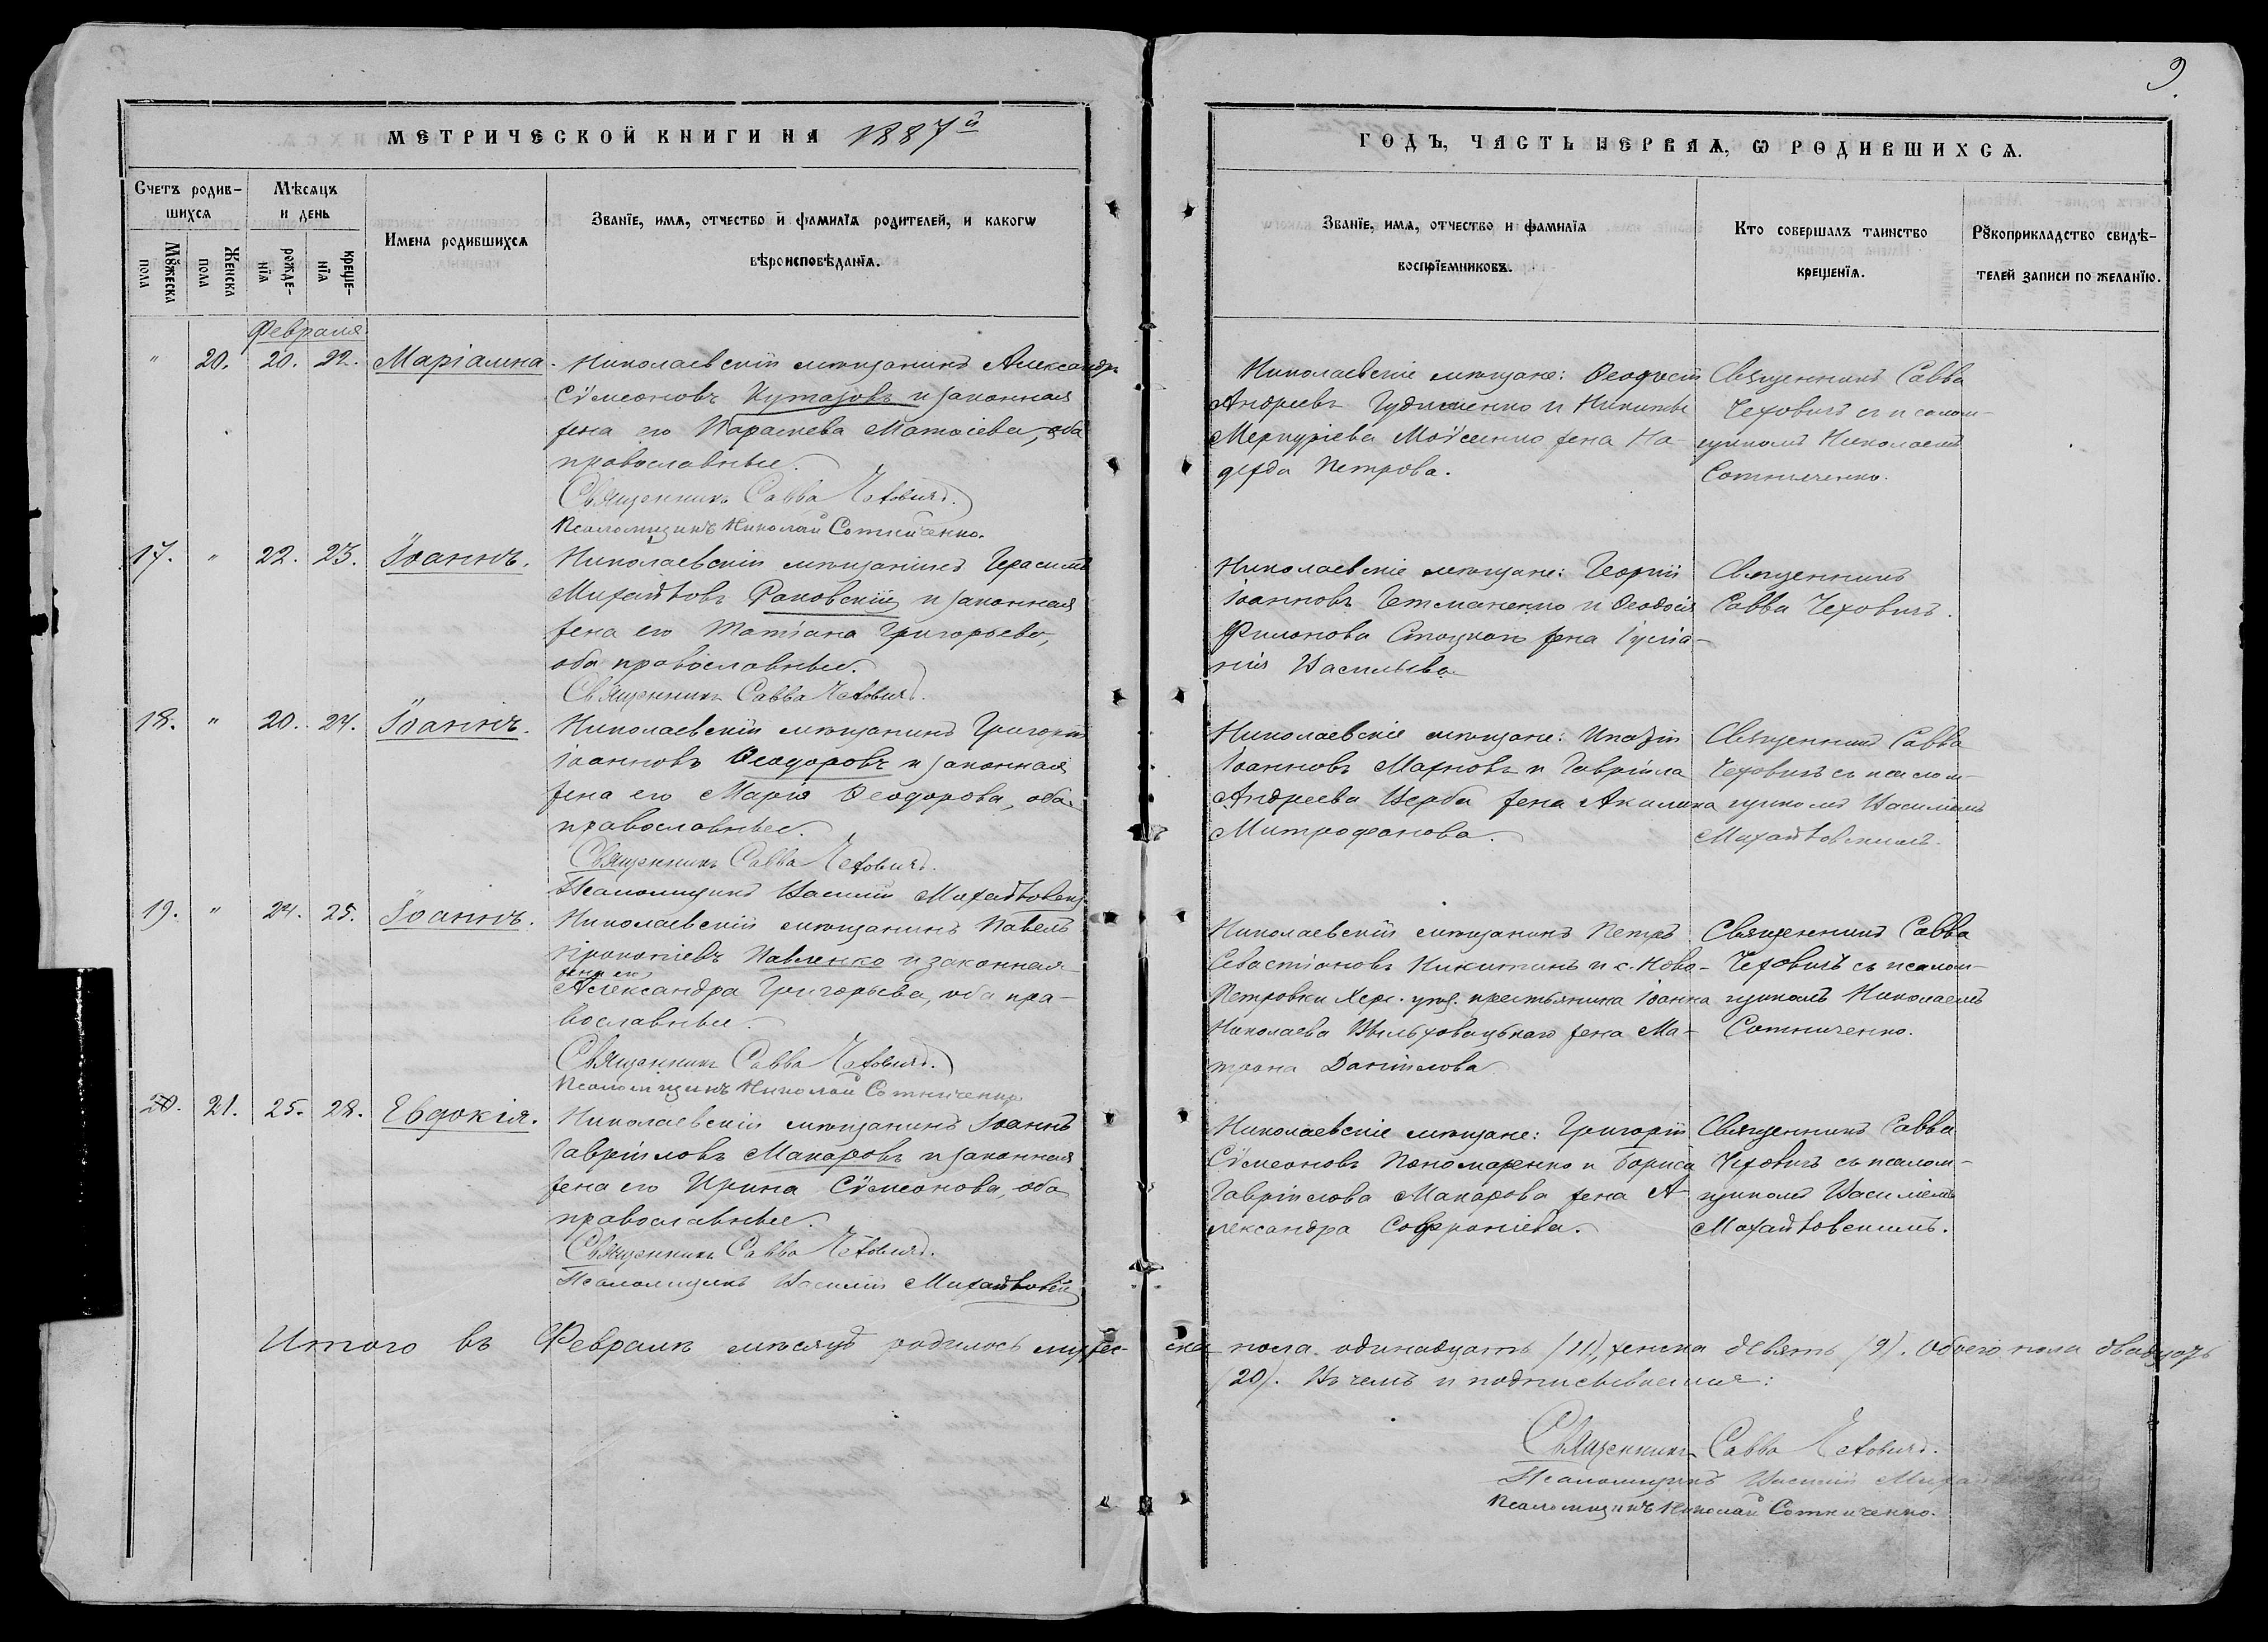 9.
МЕТРИЧЕСКОЙ КНИГИ НА 1887й
ГОДЪ, ЧАСТЬ ПЕРВАЯ, Ѡ РОДИВШИХСЯ.
Счетъ родив-
шихся
Мѣсяцъ
и день
Имена родившихся
Званїе, имя, отчество и фамилїя родителей, и какогѡ
вѣроисповѣданїя.
Мꙋжеска
пола
Женска
пола
рожде-
нїя
креще-
нїя
Званїе, имя, отчество и фамилїя
воспрїемниковъ.
Кто совершалъ таинство
крещенїя.
Рꙋкоприкладство свидѣ-
телей записи по желанїю.
Февраля
" 20. 20. 22. Маріамна.
Николаевскій мѣщанинъ Александръ
Сѵмеоновъ Кутазовъ и законная
жена его Параскева Матѳіева, оба
православные.
Священникъ Савва Чеховичъ.
Псаломщикъ Николай Сотниченко.
Николаевскіе мѣщане:
Андреевъ Гудименко и Никиты
Меркуріева Моѵсеенко жена На-
дежда Петрова.
Священникъ Савва
Чеховичъ съ псалом-
щикомъ Николаемъ
Сотниченко.
17. " 22. 23. Іоаннъ.
Николаевскій мѣщанинъ Герасимъ
Михайловъ Раковскій и законная
жена его Татіана Григорьева,
оба православные.
Священникъ Савва Чеховичъ.
Николаевскіе мѣщане: Георгій
Іоанновъ Гетманенко и Ѳеодосія
Филонова жена Іулiа-
нія Васильева
Священникъ
Савва Чеховичъ.
18. " 20. 24. Іоаннъ.
Николаевскій мѣщанинъ Григорій
Іоанновъ Ѳеодоровъ и законная
жена его Марія Ѳеодорова, оба
православные.
Священникъ Савва Чеховичъ.
Псаломщикъ Василій Михайловскій
Николаевскіе мѣщане: Ипатій
Іоанновъ Махновъ и Гавріила
Андреева Верба жена Акилина
Митрофанова.
Священникъ Савва
Чеховичъ съ псалом-
щикомъ Василіемъ
Михайловскимъ.
19. " 24. 25. Іоаннъ.
Николаевскій мѣщанинъ Павелъ
Прокопіевъ Павленко и законная
жена его
Александра Григорьева, оба пра-
вославные.
Священникъ Савва Чеховичъ.
Псаломщикъ Николай Сотниченко
Николаевскій мѣщанинъ Петръ
Севастіановъ Никитинъ и с. Ново-
Петровки Херс. уѣз. крестьянина Іоанна
Николаева жена Ма-
трона Даніилова
Священникъ Савва
Чеховичъ съ псалом-
щикомъ Николаемъ
Сотниченко.
20. 21. 25. 28. Евдокія.
Николаевскій мѣщанинъ Іоаннъ
Гавріиловъ Макаровъ и законная
жена его Ирина Сѵмеонова, оба
православные.
Священникъ Савва Чеховичъ.
Псаломщикъ Василій Михайловскій
Николаевскіе мѣщане: Григорій
Сѵмеоновъ Пономаренко и Бориса
Гавріилова Макарова жена А-
лександра Софроніева.
Священникъ Савва
Чеховичъ съ псалом-
щикомъ Василіемъ
Михайловскимъ.
Итого въ Февралѣ мѣсяцѣ родилось мужес-ка пола одинадцать /11/, женска девять /9/. Обоего пола двадцать
/20/. Въ чемъ и подписываемся:
Священникъ Савва Чеховичъ.
Псаломщикъ Василій
Псаломщикъ Николай Сотниченко.